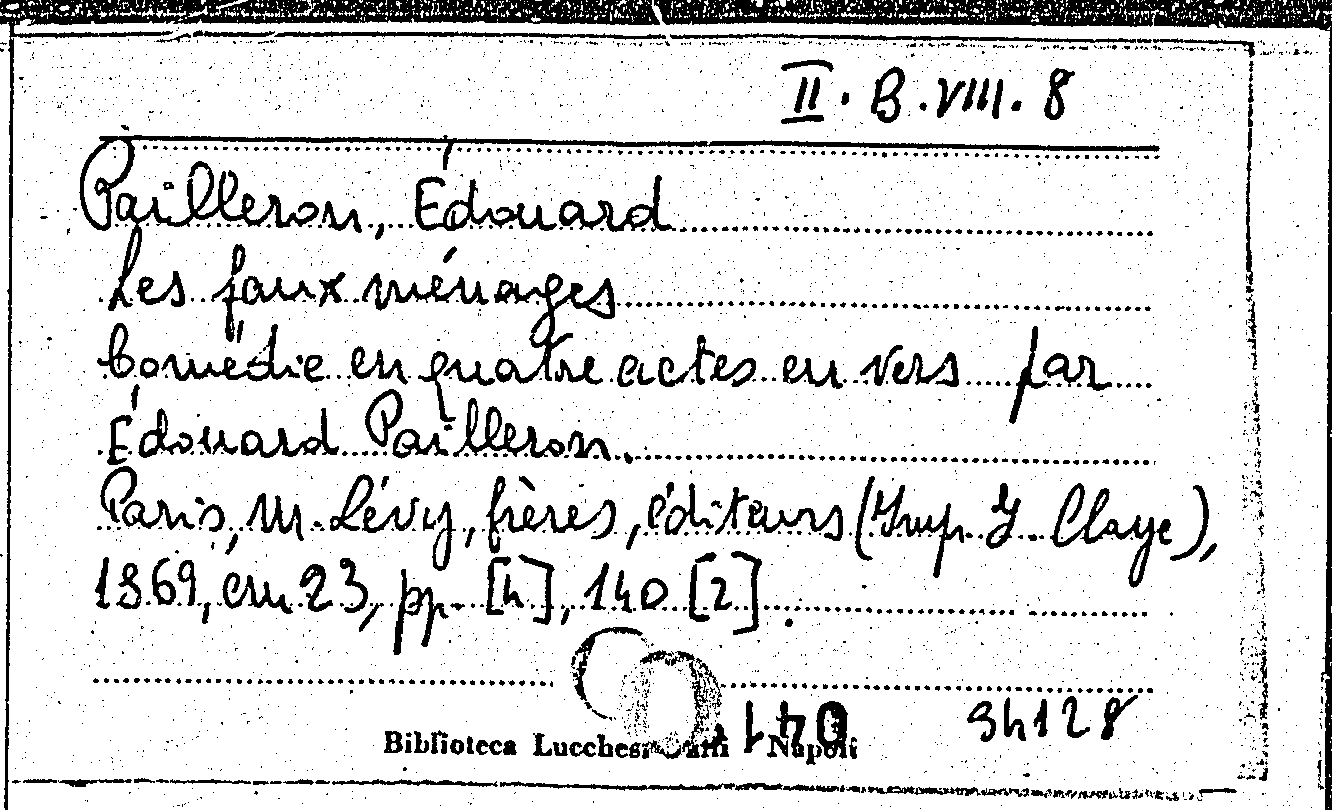 II. B. VIII. 8
Pailleron, Édouard
Les faux ménages
Comédie en quatre actes en vers par
Édouard Pailleron.
Paris, M. Lévy, frères, éditeurs (Imp. J. Claye),
1869, cm 23, pp. [4], 140 [2].
94128
Biblioteca Lucchesi Palli Napoli